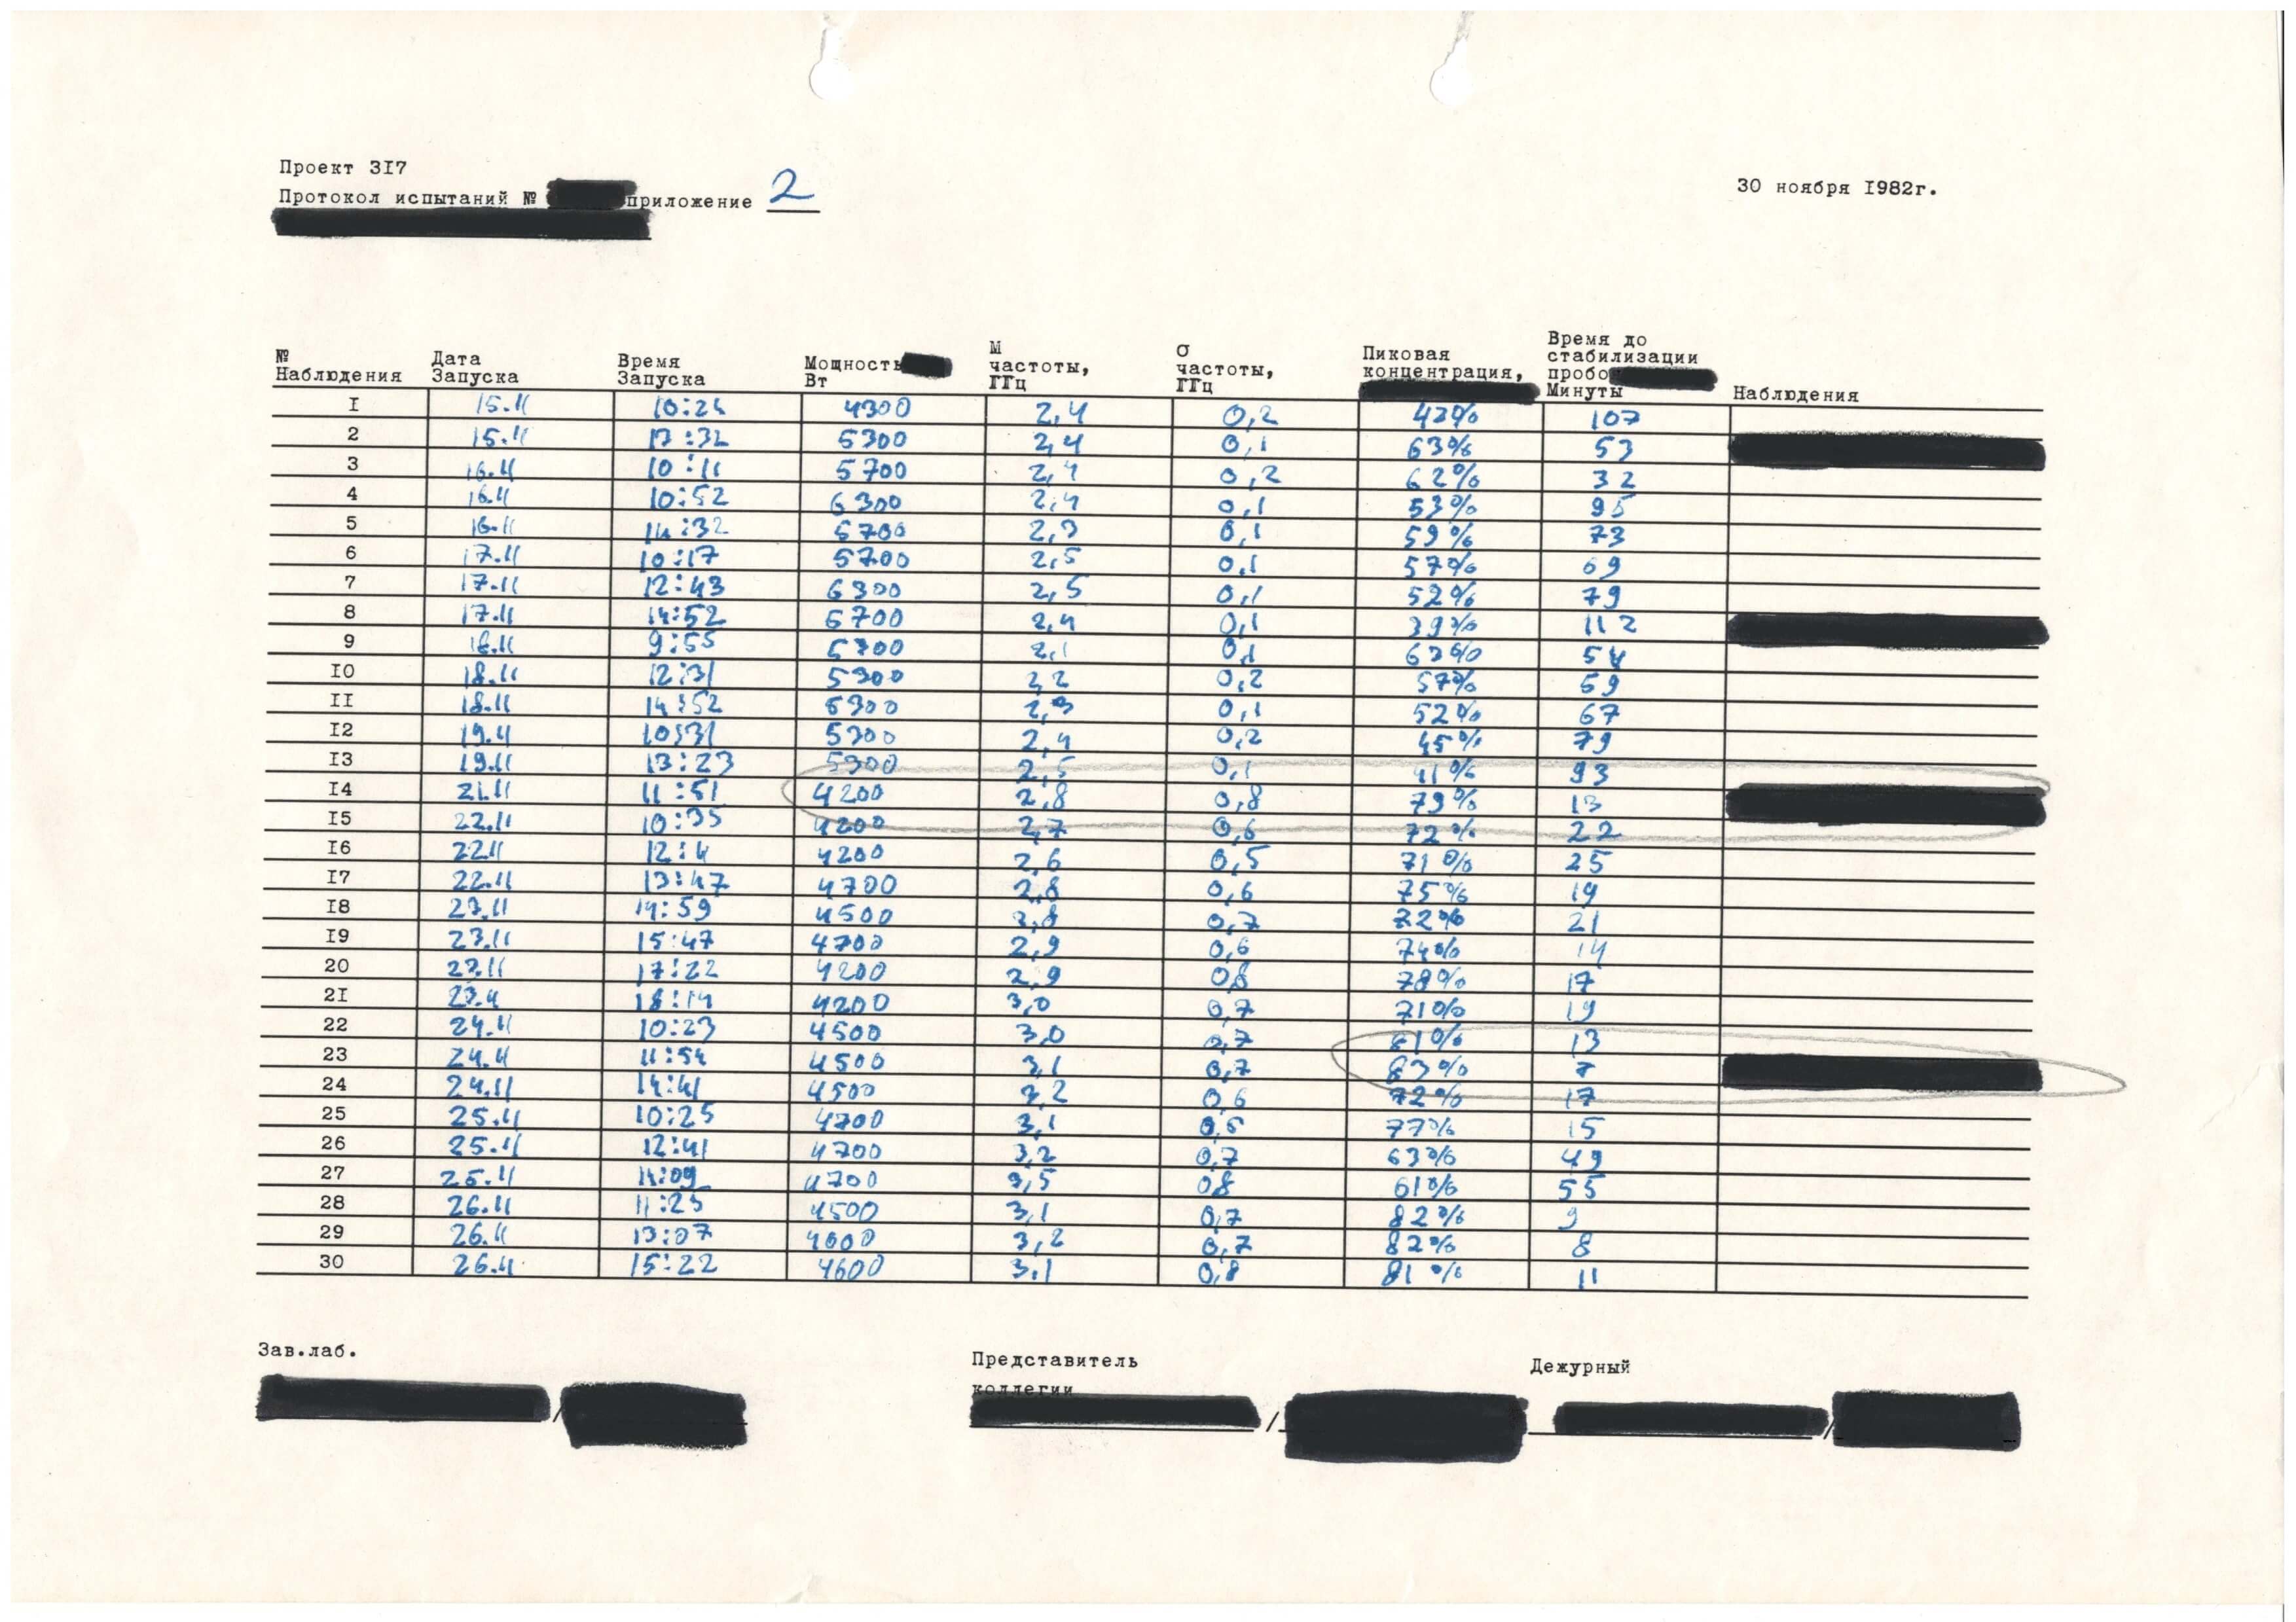 Проект 3I7
Протокол испытаний № приложение 2
30 ноября I982г.
№ Наблюдения Дата Запуска Время Запуска Мощность Вт М частоты, ГГц σ частоты, ГГц Пиковая концентрация, Время до стабилизации Минуты Наблюдения
I 15.11 4300 2,4 0,2 107
2 15.11 17:32 5300 2,4 0,1 63% 53
3 16.11 10:11 5700 2,4 0,2 62% 32
4 16.11 10:52 6300 2,4 0,1 53% 95
5 16.11 14:32 5700 2,3 0,1 59% 73
6 17.11 10:17 5700 2,5 0,1 57% 69
7 17.11 12:43 6300 2,5 0,1 52% 79
8 17.11 14:52 6700 2,4 0,1 39% 112
9 18.11 9:55 2,1 0,1 63% 54
I0 18.11 12:31 5300 2,2 0,2 57% 59
II 18.11 14:52 5300 2,3 0,1 52% 67
I2 19.11 10:31 5300 2,4 0,2 45% 79
I3 19.11 13:23 5300 2,5 0,1 41% 93
I4 21.11 11:51 4200 2,8 0,8 79% 13
I5 22.11 10:35 4200 2,7 0,6 72% 22
I6 22.11 4200 2,6 0,5 71% 25
I7 22.11 13:47 4700 2,8 0,6 75% 19
I8 23.11 14:59 4500 0,7 72% 21
I9 23.11 15:47 4700 2,9 0,6 74% 14
20 23.11 17:22 4200 2,9 0,8 78% 17
2I 23.11 18:14 4200 3,0 0,7 71% 19
22 24.11 10:23 4500 3,0 0,7 81% 13
23 24.11 11:54 4500 3,1 0,7 83% 7
24 24.11 14:41 4500 3,2 0,6 72% 17
25 25.11 10:25 4700 3,1 77% 15
26 25.11 12:41 4700 3,2 0,7 63% 49
27 25.11 14:09 4700 3,5 0,8 61% 55
28 26.11 11:23 4500 3,1 0,7 82% 9
29 26.11 13:07 4600 3,2 0,7 82% 8
30 26.11 15:22 4600 3,1 0,8 81% 11
Зав.лаб.
Представитель
коллегии
Дежурный